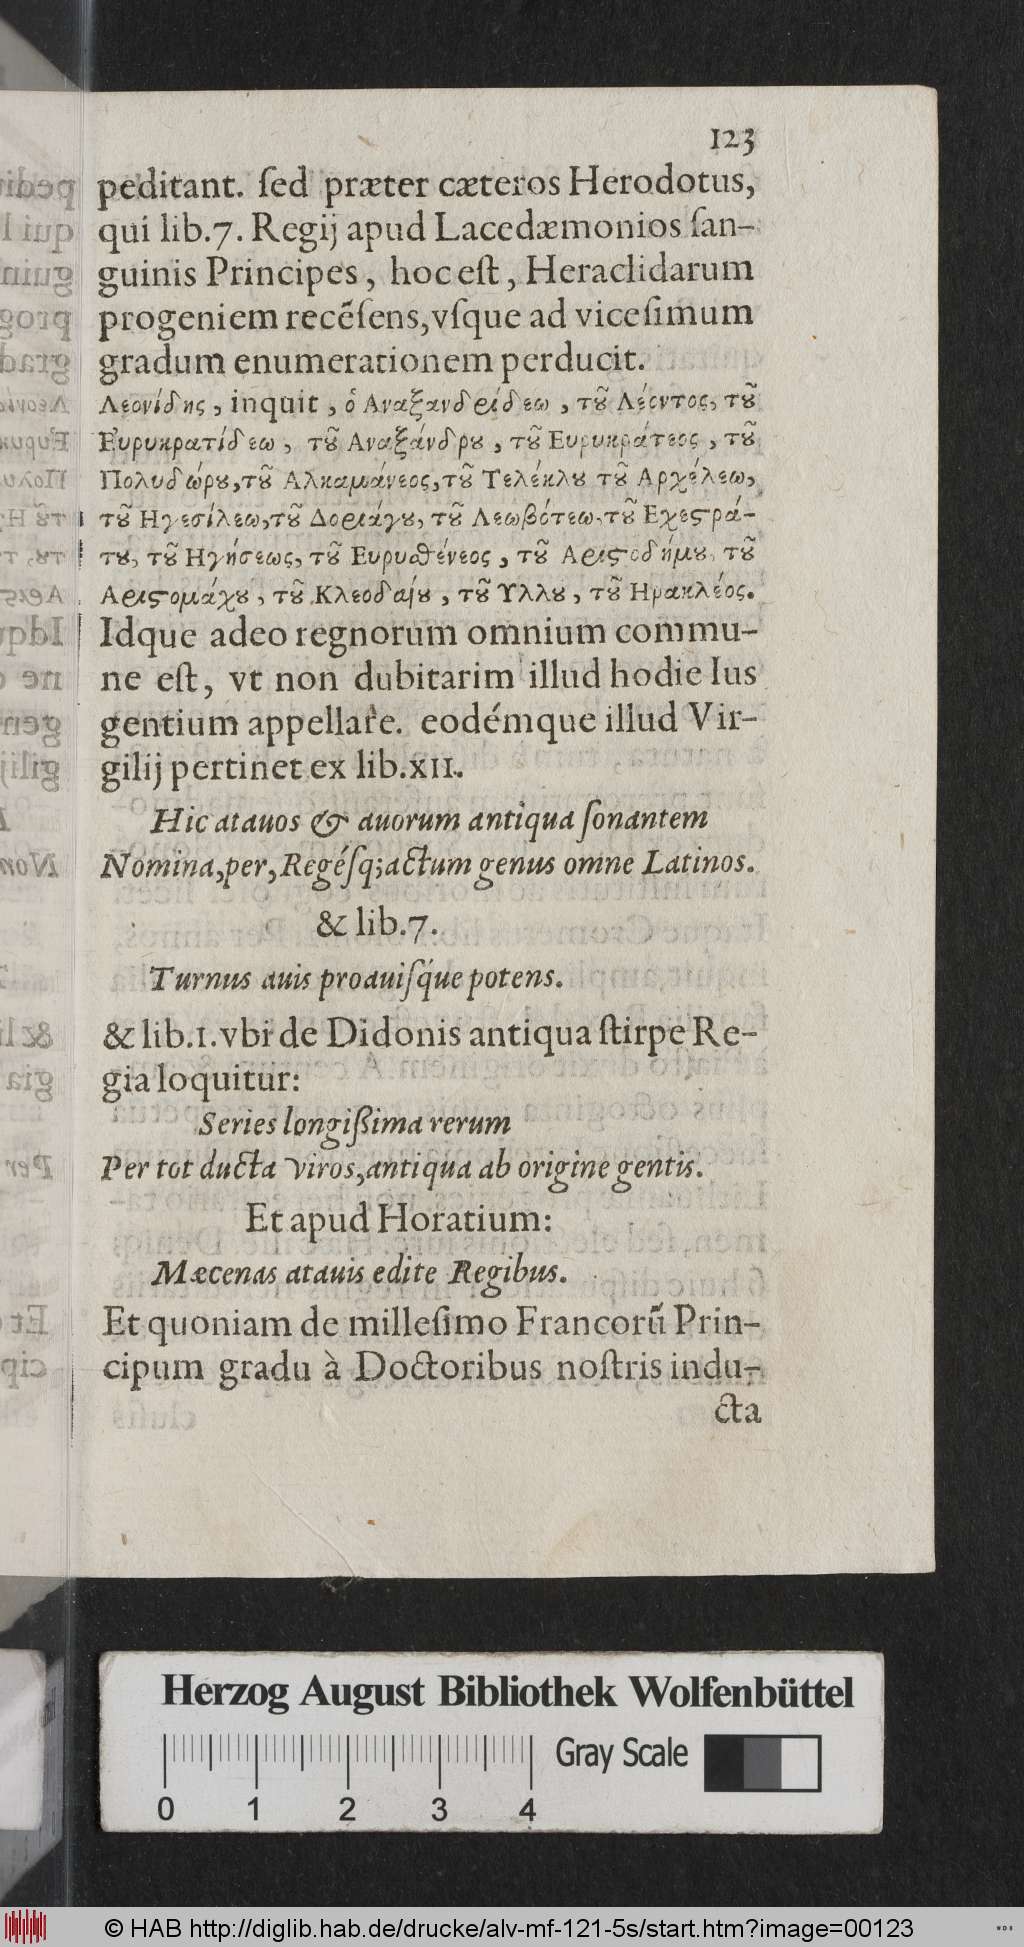 123
peditant. ſed præter cæteros Herodotus,
qui lib.7. Regij apud Lacedæmonios ſan-
guinis Principes, hoc eſt, Heraclidarum
progeniem recẽſens, vſque ad viceſimum
gradum enumerationem perducit.
Λεονίδης, inquit, ὁ Αναξανδρίδεω, τοῦ Λέοντος, τοῦ
Ευρυκρατίδεω, τοῦ Αναξάνδρου, τοῦ Ευρυκράτεος, τοῦ
Πολυδώρου, τοῦ Αλκαμάνεος, τοῦ Τελέκλου τοῦ Αρχέλεω,
τοῦ Ηγεσίλεω, τοῦ Δορυάγου, τοῦ Λεωβότεω, τοῦ Εχεϛρά-
του, τοῦ Ηγήσεως, τοῦ Ευρυσθένεος, τοῦ Αριϛοδήμου, τοῦ
Αριϛομάχου, τοῦ Κλεοδαίου, τοῦ Υλλου, τοῦ Ηρακλέος.
Idque adeo regnorum omnium commu-
ne eſt, vt non dubitarim illud hodie Ius
gentium appellare. eodémque illud Vir-
gilij pertinet ex lib.XII.
Hic atauos & auorum antiqua ſonantem
Nomina, per, Regéſq; actum genus omne Latinos.
& lib.7.
Turnus auis proauiſq́ue potens.
& lib.1. vbi de Didonis antiqua ſtirpe Re-
gia loquitur:
Series longißima rerum
Per tot ducta viros, antiqua ab origine gentis.
Et apud Horatium:
Mæcenas atauis edite Regibus.
Et quoniam de milleſimo Francorũ Prin-
cipum gradu à Doctoribus noſtris indu-
cta
Herzog August Bibliothek Wolfenbüttel
Gray Scale
0 1 2 3 4
© HAB http://diglib.hab.de/drucke/alv-mf-121-5s/start.htm?image=00123